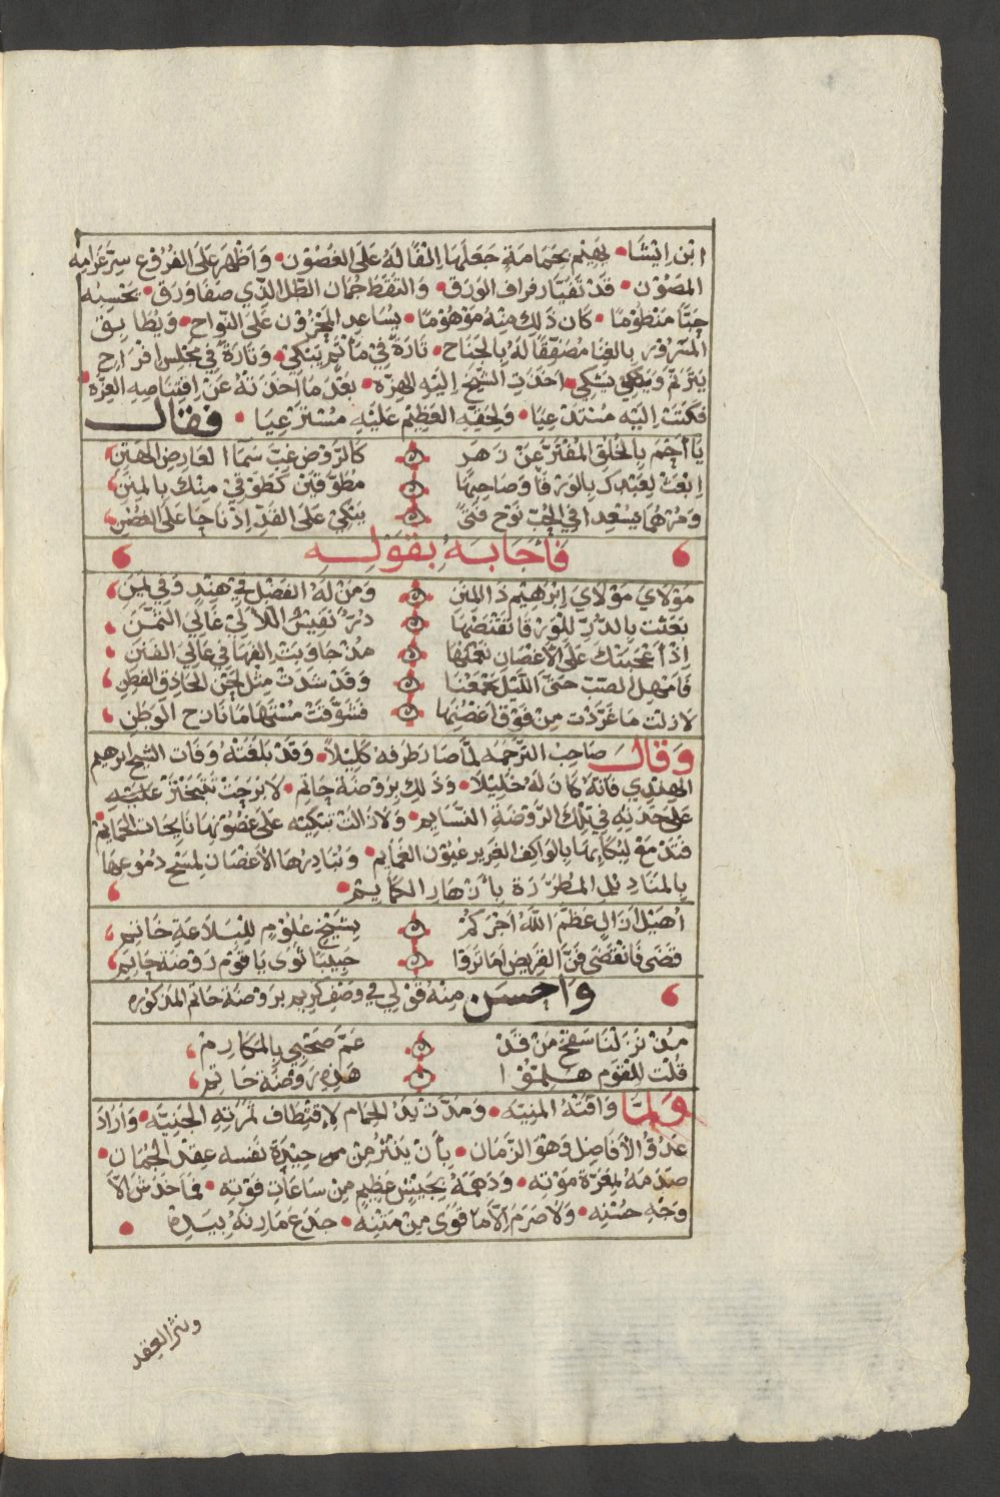 ابن ابنشا • بهيم بحمامة جعلها الفا له على الغصون • واظهر على الفروع سر غرامه
المصون • قد تفيا رفراف الورق • والتقط جمان الطل الذي صفا ورق • يحسبه
حبا منظوما • كان ذلك منه موهوما • يساعد المحزون على النواح • ويطابق
المسرور بالغنا مصفقا له بالجناح • تارة في ماتم يبتكي • وتارة في مجلس افراح
يترنم ويبكي يشتكي • اخذت الشيخ اليه الهزه • بعد ما اخذته عن اقتناصه العزه
فكتب اليه مستدعيا • ولحقه العظيم عليه مسترعيا • فقال
يا أخم بالخلق المفتر عن زهر كالروض غب سما العارض الهتن
ابعث لعبدك بالورقا وصاحبها مطوقين كطوقي منك بالمنن
ومرهما يسعدا في الحب نوح فتى يبكي على القد اذ ناحا على الغصن
فأجابه بقوله
مولاي مولاي ابرهيم ذا المنن ومن له الفضل في هند وفي يمن
بعثت بالدر للورقا تقتضها در نفيس اللآلي غالي الثمن
اذ أعجبتك على الأغصان نغمتها مذ جاوبت الفها في عالي الفنن
فامهل الصب حتى الليل يجمعنا وقد شدت مثل لحن الحاذق الفطن
لا زلت ما غردت من فوق اغصنها فشوقت مستهاما نازح الوطن
وقال صاحب الترجمه لما صار طرفه كليلا • وقد بلغته وفات الشيخ ابرهيم
الهندي فانه كان له خليلا • وذلك بروضة حاتم • لا برحت تتبختر عليه
على جدثه في تلك الروضة النسايم • ولا زالت تبكيه على غصونها نايحات الحمايم
فتدمع لبكايها بالواكف الغرير عيون الغمايم • وتبادرها الأغصان لمسح دموعها
بالمناديل المطرزة بأزهار الكمايم •
أهيل ازال عظم الله اجركم بشيخ علوم للبلاغة خاتم
قضى فانقضى فن القريض اما تروا حبيبا ثوى يا قوم روضة حاتم
واحسن منه قولي في وصف كريم بروضة حاتم المذكوره
مذ نزلنا سفح من قد عم صحبي بالمكارم
قلت للقوم هلموا هذه روضة حاتم
ولما وافته المنيه • ومدت يد الحمام لإقتطاف ثمرته الجنيه • واراد
عدو الأفاضل وهو الزمان • بأن ينثر من جيده نفسه عقد الجمان •
صدمه لمعرة موته • ودهمه بجيش عظيم من ساعات فوته • فما خدش الا
وجه حسنه • ولا صرم الا ما قوى من متنه • جدع مارنه بيده •
ونثر العقد